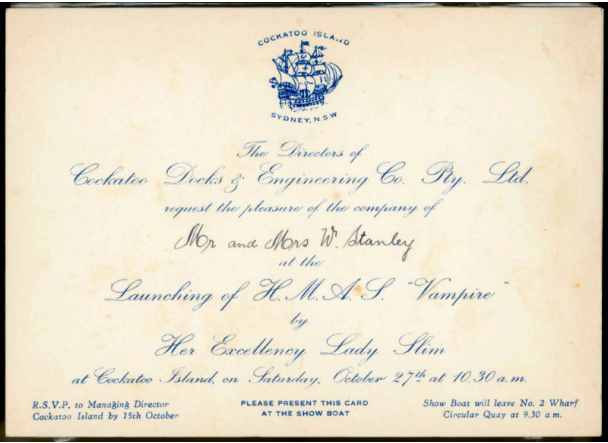 COCKATOO ISLAND
SYDNEY, N.S.W
The Directors of
Cockatoo Docks & Engineering Co. Pty. Ltd.
request the pleasure of the company of
Mr and Mrs W. Stanley
at the
Launching of H.M.A.S. "Vampire"
by
Her Excellency Lady Slim
at Cockatoo Island, on Saturday, October 27th at 10.30 a.m.
R.S.V.P. to Managing Director
Cockatoo Island by 15th October
PLEASE PRESENT THIS CARD
AT THE SHOW BOAT
Show Boat will leave No. 2 Wharf
Circular Quay at 9.30 a.m.